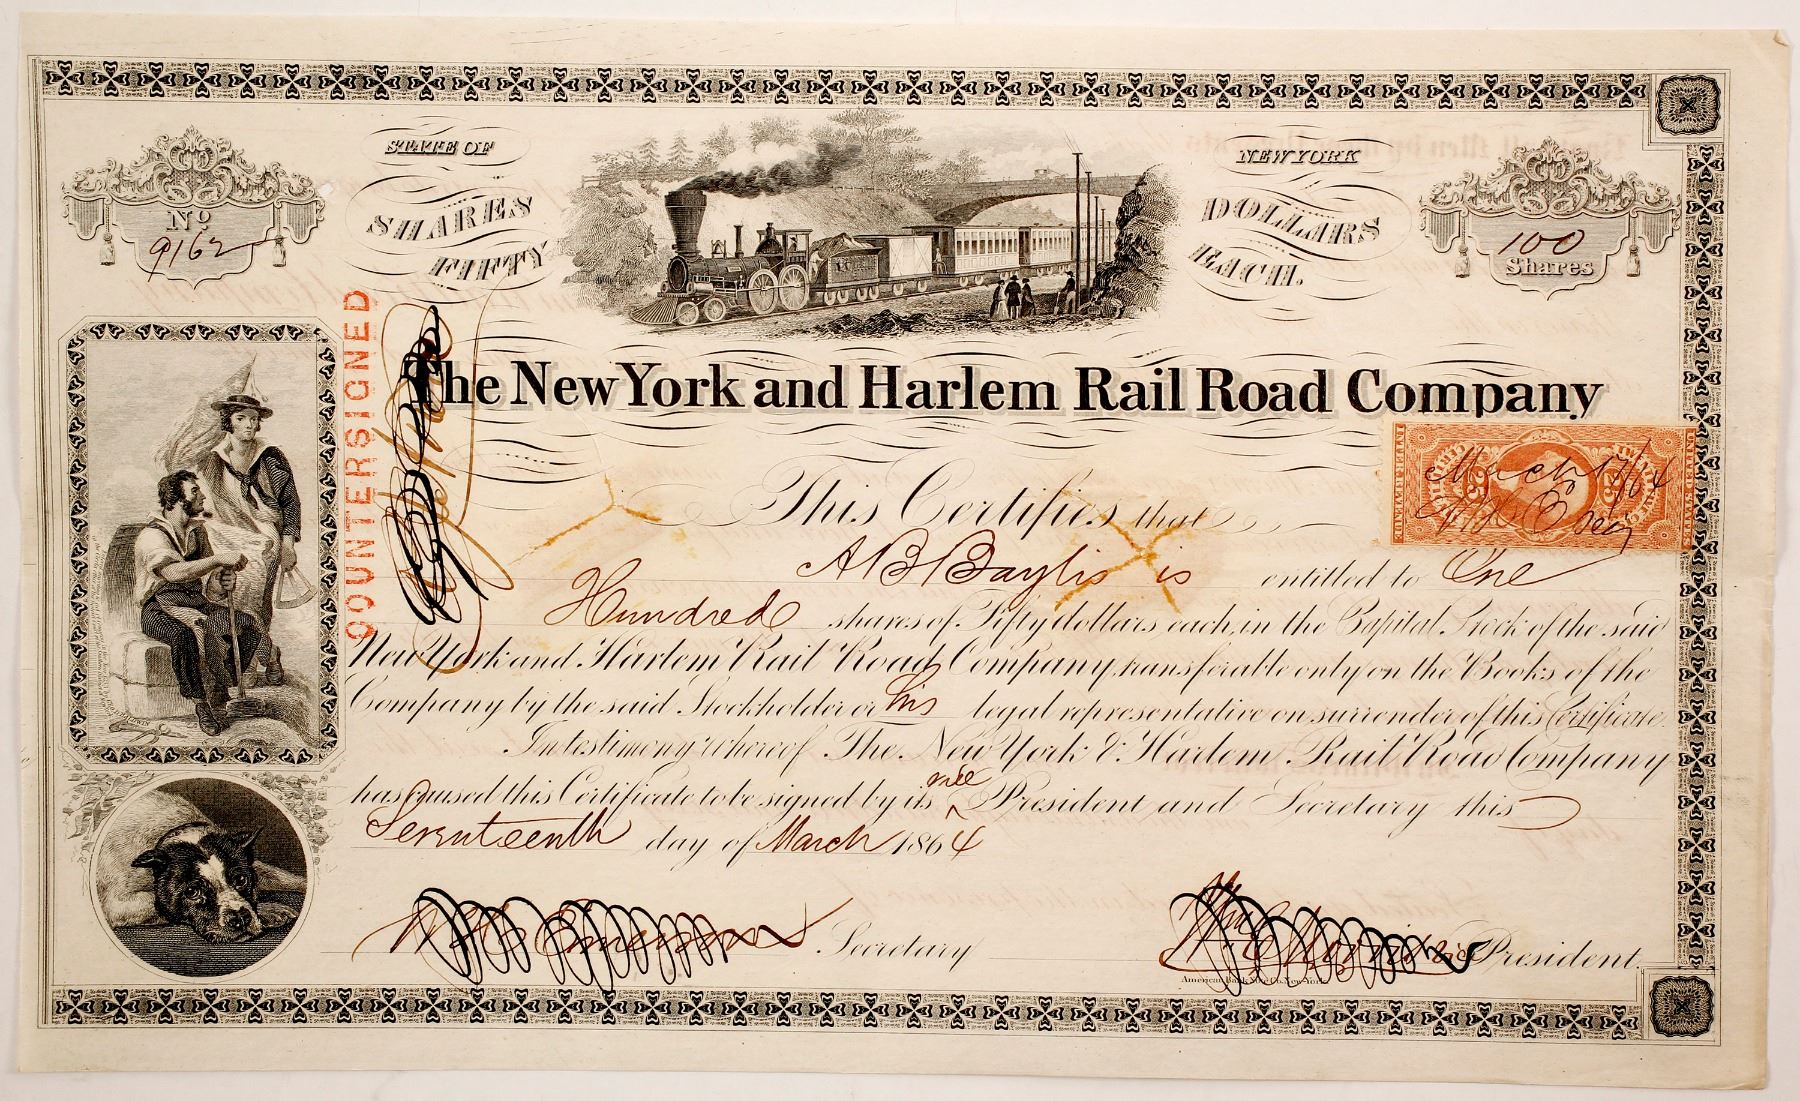 STATE OF
NEW YORK
No
9162
SHARES
DOLLARS
100
Shares
FIFTY
EACH.
COUNTERSIGNED
The New York and Harlem Rail Road Company
UNITED STATES
INTER. REV.
25
25
March 17/64
This Certifies that
A B Baylis is entitled to One
Hundred shares of Fifty dollars each, in the Capital Stock of the said
New York and Harlem Rail Road Company, transferable only on the Books of the
Company by the said Stockholder or his legal representative on surrender of this Certificate.
In testimony whereof The New York & Harlem Rail Road Company
has caused this Certificate to be signed by its vice President and Secretary this
Seventeenth day of March 1864
Secretary
vice President.
American Bank Note Co. New-York